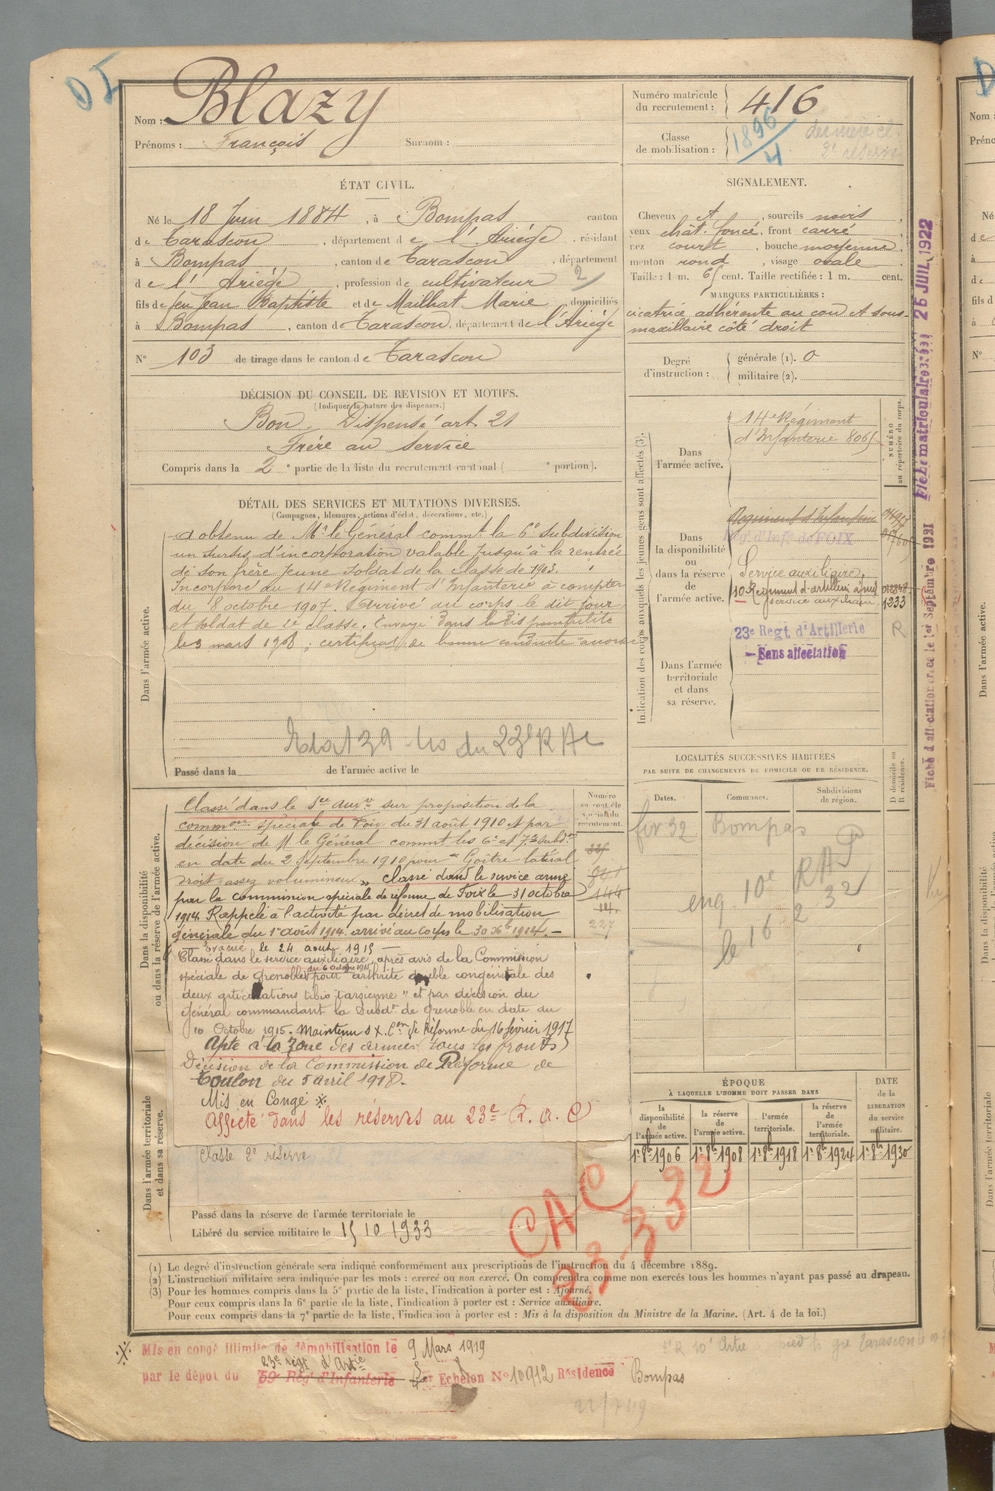 Nom : Blazy
Prénoms : François Surnom :
Numéro matricule du recrutement : 416
Classe de mobilisation : 1896/4
ÉTAT CIVIL.
Né le 18 Juin 1884, à Bompas canton
de Tarascon, département de l'Ariège, résidant
à Bompas, canton de Tarascon, département
de l'Ariège, profession de cultivateur
fils de feu Jean Baptiste et de Mailhat Marie, domiciliés
à Bompas, canton de Tarascon, département de l'Ariège
N° 103 de tirage dans le canton de Tarascon
SIGNALEMENT.
Cheveux et, sourcils noirs,
yeux chât. foncé, front carré,
nez court, bouche moyenne,
menton rond, visage ovale
Taille : 1 m. 65 cent. Taille rectifiée : 1 m. cent.
MARQUES PARTICULIÈRES :
cicatrice adhérente au cou et sous-
maxillaire côté droit
Degré d'instruction : générale (1). 0
militaire (2).
DÉCISION DU CONSEIL DE REVISION ET MOTIFS.
(Indiquer la nature des dispenses.)
Bon. Dispensé art. 21
Frère au service
Compris dans la 2e partie de la liste du recrutement cantonal ( e portion).
DÉTAIL DES SERVICES ET MUTATIONS DIVERSES.
(Campagnes, blessures, actions d'éclat, décorations, etc.)
Dans l'armée active.
a obtenu de Mr le Général commt la 6e subdivision
un sursis d'incorporation valable jusqu'à la rentrée
de son frère jeune soldat de la classe de 1903.
Incorporé du 14e Régiment d'Infanterie à compter
du 8 octobre 1907. Arrivé au corps le dit jour
et soldat de 2e classe. Envoyé dans la disponibilité
le 3 mars 1908 ; certificat de bonne conduite accordé
du 23e RAC
Passé dans la de l'armée active le
Indication des corps auxquels les jeunes gens sont affectés (3).
NUMÉRO au répertoire du corps.
Dans l'armée active.
14e Régiment
d'Infanterie 8065
Dans la disponibilité ou dans la réserve de l'armée active.
Régiment d'Infanterie
Rég. d'Infie de FOIX
Service auxiliaire,
10 Régiment d'artillerie à pied
service auxiliaire
1333
R
23e Regt d'Artillerie
Sans affectation
Dans l'armée territoriale et dans sa réserve.
Fiche matriculaire : 25 JUIL 1922
Fiche d'affectation créée le 1er Septembre 1931
Dans la disponibilité ou dans la réserve de l'armée active.
Numéro au contrôle spécial du recrutement.
Classé dans le Sce auxre sur proposition de la
common spéciale de Foix du 31 août 1910 et par
décision de M. le Général commt les 6e et 7e Subdon
en date du 2 septembre 1910 pour "Goitre latéral
droit assez volumineux". Classé dans le service armé
par la commission spéciale de réforme de Foix le 31 octobre
1914. Rappelé à l'activité par décret de mobilisation
générale du 1er août 1914. arrivé au corps le 30 Xbre 1914. —
Evacué le 24 aout 1915 —
Classé dans le service auxiliaire, après avis de la Commission
spéciale de Grenoble du 6 octobre 1915 pour "arthrite double congénitale des
deux articulations tibio tarsienne" et par décision du
Général commandant la Subdon de Grenoble en date du
10 Octobre 1915. Maintenu S.X. Con de Réforme du 16 février 1917
Apte à la zone des armées (tous les fronts)
Décision de la Commission de Réforme de
Toulon du 5 avril 1918.
Mis en Congé ※.
Affecté dans les réserves au 23e R. A. C
Dans l'armée territoriale et dans sa réserve.
Classe 2e réserve
Passé dans la réserve de l'armée territoriale le
Libéré du service militaire le 15 10 1933
LOCALITÉS SUCCESSIVES HABITÉES
PAR SUITE DE CHANGEMENTS DE DOMICILE OU DE RÉSIDENCE.
Dates. Communes. Subdivisions de région. D domicile ou R résidence.
fév 32 Bompas
enq. 10e RAP
le 16 2 32
ÉPOQUE
À LAQUELLE L'HOMME DOIT PASSER DANS
la disponibilité de l'armée active. la réserve de l'armée active. l'armée territoriale. la réserve de l'armée territoriale.
DATE de la LIBÉRATION du service militaire.
1er 8bre 1906 1er 8bre 1908 1er 8bre 1918 1er 8bre 1924 1er 8bre 1930
CAC
23-3-32
(1) Le degré d'instruction générale sera indiqué conformément aux prescriptions de l'instruction du 4 décembre 1889.
(2) L'instruction militaire sera indiquée par les mots : exercé ou non exercé. On comprendra comme non exercés tous les hommes n'ayant pas passé au drapeau.
(3) Pour les hommes compris dans la 5e partie de la liste, l'indication à porter est : Ajourné.
Pour ceux compris dans la 6e partie de la liste, l'indication à porter est : Service auxiliaire.
Pour ceux compris dans la 7e partie de la liste, l'indication à porter est : Mis à la disposition du Ministre de la Marine. (Art. 4 de la loi.)
※ Mis en congé illimité de démobilisation le 9 Mars 1919
23e régt d'Artie
par le dépôt du 59e Rég d'Infanterie Echelon N° 10912 Résidence Bompas